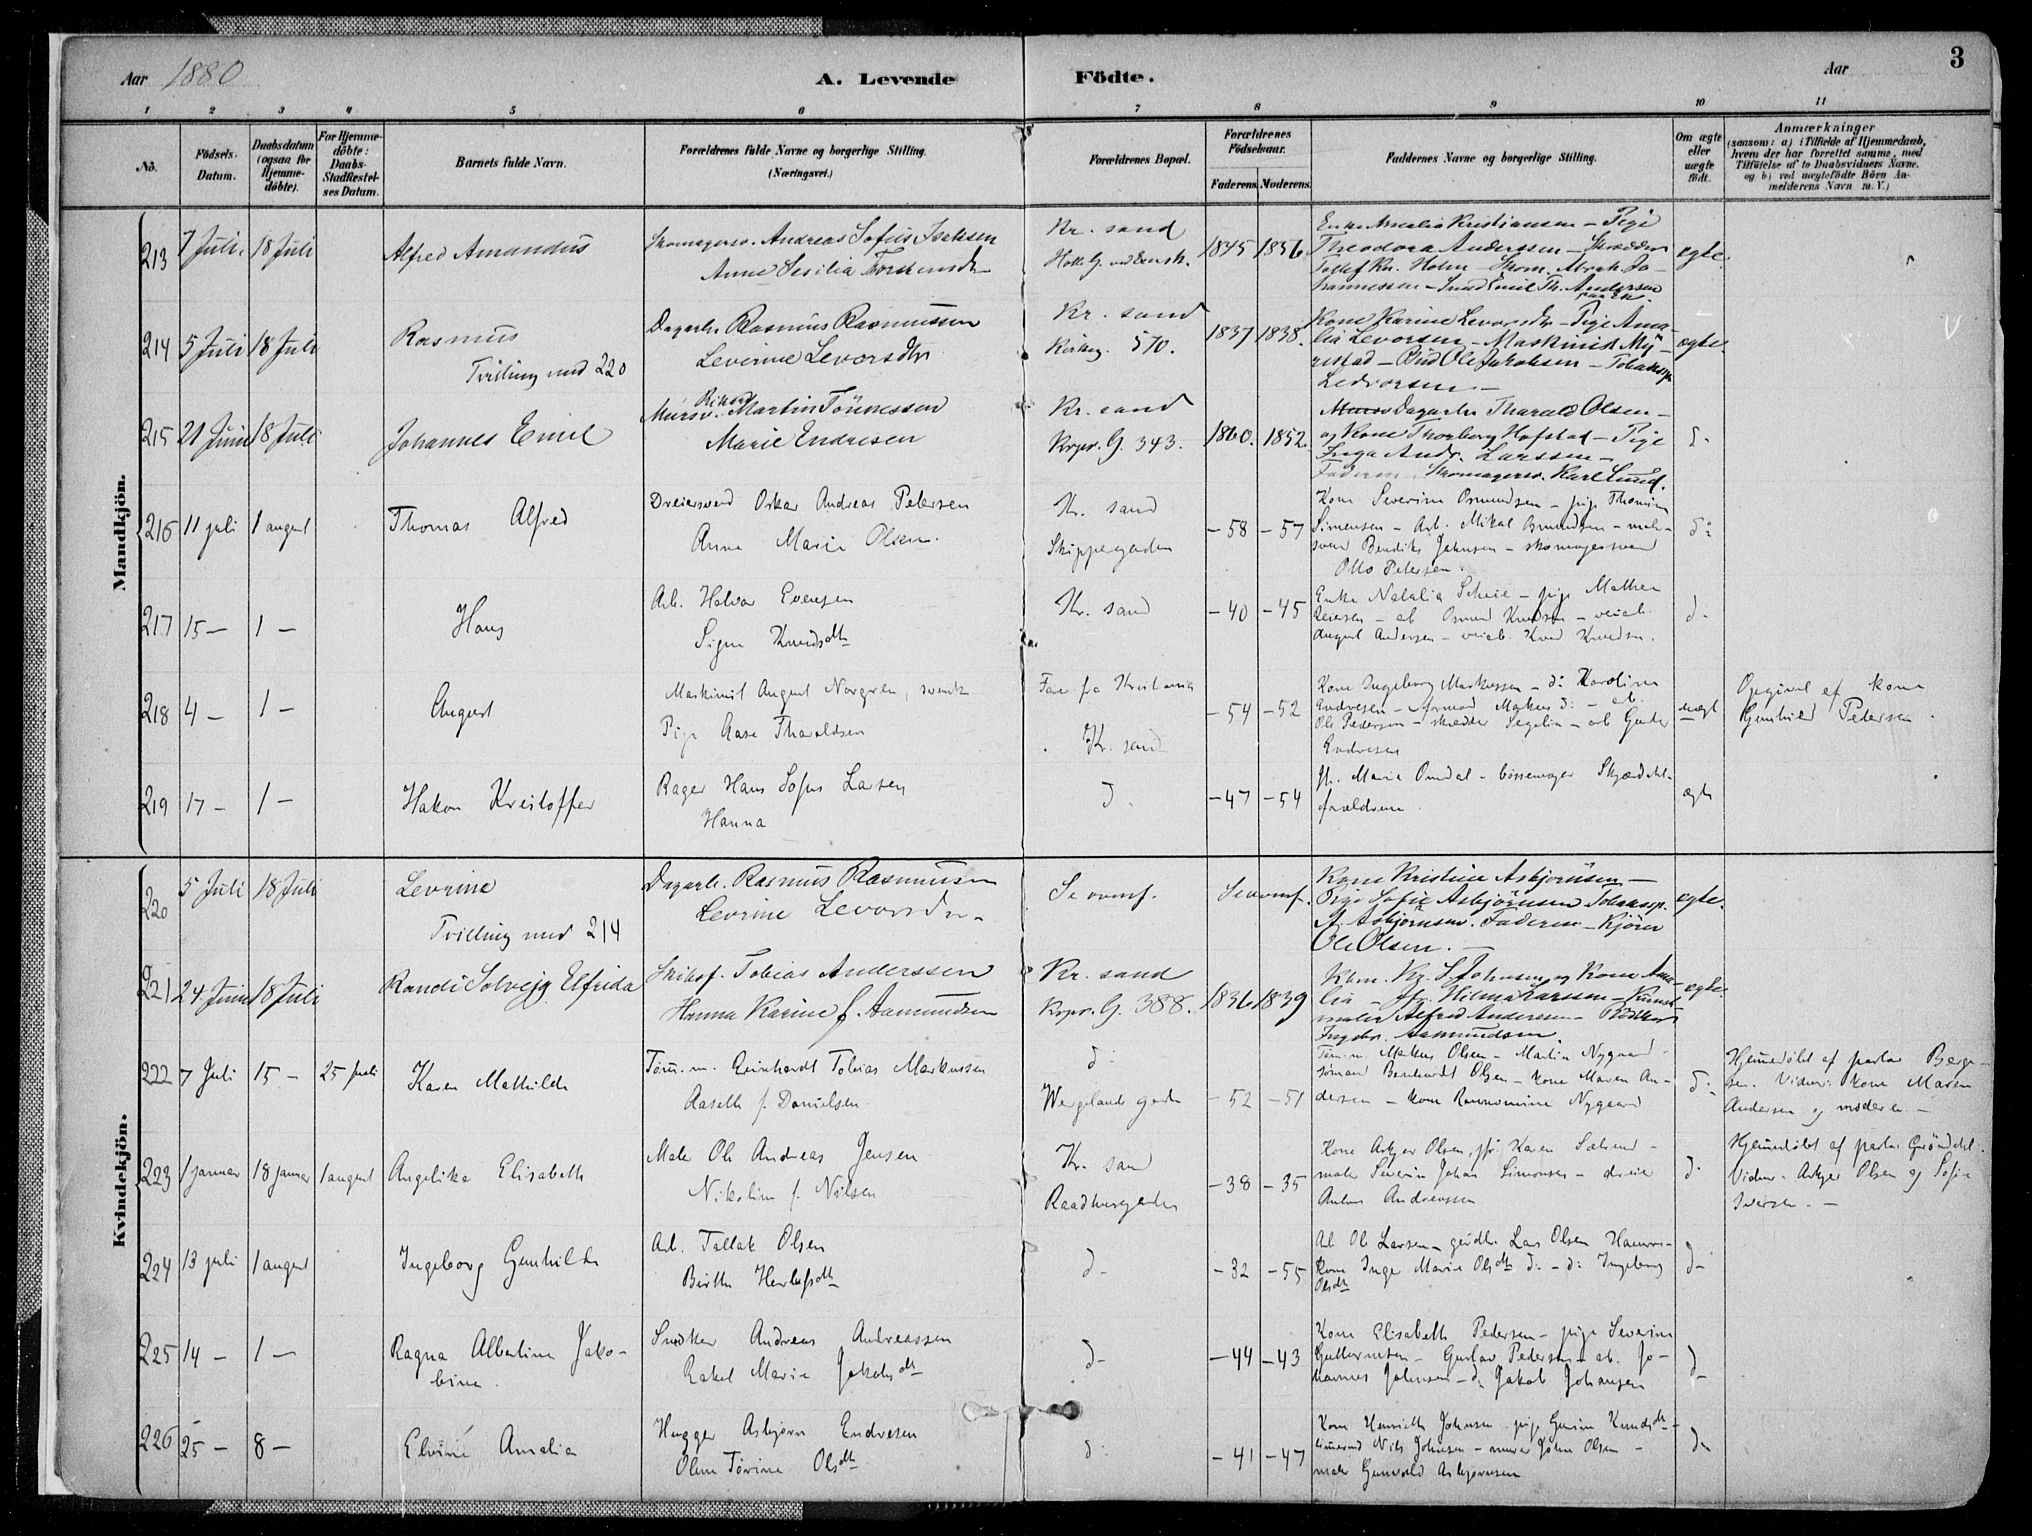 Aar 1880
A. Levende Födte.
Aar
3
1 2 3 4 5 6 7 8 9 10 11
No.
Födsels-Datum.
Daabsdatum (ogsaa for Hjemmedöbte).
For Hjemmedöbte: Daabs-Stadfæstelses Datum.
Barnets fulde Navn.
Forældrenes fulde Navne og borgerlige Stilling.
(Næringsvei.)
Forældrenes Bopæl.
Forældrenes Födselsaar.
Faderens. Moderens.
Faddernes Navne og borgerlige Stilling.
Om ægte eller uægte födt.
Anmærkninger
(saasom: a) i Tilfælde af Hjemmedaab, hvem der har forrettet samme, med Tilföielse af to Daabsvidners Navne, og b) ved uægtefödte Börn Anmelderens Navn m. V.)
Mandkjön.
213 7 Juli. 18 Juli Alfred Amandus
Skomagersv. Andreas Sofus Isaksen
Anne Sesilia
Kr. sand
1845 1856
Enke Amalia Kristiansen – Pige
Theodora Anderssen – Skrædder
Tallef Kn. Holm – Skom. Abrah. Johannessen – Emil Th. Andersen
egte.
214 5 Juli 18 Juli Rasmus
Tvilling med 220
Dagarb. Rasmus Rasmussen
Leverine Levorsdtr
Kr. sand
Kirkeg. 570.
1837 1838.
Kone Karine Levorsdtr – Pige Amalia Levorsen – Maskinist Myrestad – Bud Ole Jakobsen – Tobaksp.
Ledvorsen –
ægte.
215 21 Juni 18 Juli Johannes Emil
Mursv. Rikard Martin Tönnessen
Marie Endresen
Kr. sand
Krpr. G. 343.
1860. 1852.
Dagarb. Tharald Olsen –
og Kone Thorborg Hofstad – Pige
Inga Andr. Larssen –
Faderen. Skomagersv. Karl Lund.
d-
216 11 juli 1 august Thomas Alfred
Dreiersvend Oskar Andreas Petersen
Anna Marie Olsen.
Kr. sand
Skippergaden
–58 –57
Kone Severine Osmundsen – pige Thomine
Simensen – Arb. Mikal Osmundsen – malersvend Bendiks Johnsen – skomagersvend
Otto Petersen.
d:
217 15 – 1 – Hans
Arb. Halvor Evensen
Signe Knudsdtr
Kr. sand
–40 –45
Enke Natalia Scheie – pige Mathea
Reiersen – arb Osmund Knudsen – veiarb.
August Andersen – veiarb. Knud Knudsen.
d-
218 4 – 1 – August
Maskinist August Norgren, svensk
Pige Aase Tharaldsen
Far fra Kristiania
Kr. sand
–54 –52
Kone Ingeborg Markussen – d: Karoline
Endresen – formand Markus d: – arb.
Ole Pederson – skrædder Segelin – arb
Endresen
uægt
Opgivet af kone
Gunhild Pedersen.
219 17 – 1 – Hakon Kristoffer
Bager Hans Sofus Larsen
Hanna
d-
–47 –54
jfr. Maria Omdal – bössemager
forældrene.
ægte
Kvindekjön.
220 5 Juli 18 Juli Levrine
Tvilling med 214
Dagarb. Rasmus Rasmussen
Levrine Levorsdtr –
Se ovenf.
Se ovenf.
Kone Kristine Asbjörnsen –
Pige Sofie Asbjörnsen Tobaksp.
A. Asbjörnsen. Faderen – Kjörer
Ole Olsen. –
egte.
221 24 Juni 18 Juli Randi Solvejg Elfrida
Skibsf. Tobias Anderssen
Hanna Karine f. Aamundsen
Kr. sand
Krpr. G. 388.
1836 1839
Kbm. Kr. S. Johnsen og Kone Amalia – Jfr. Hilma Larssen – Kunstmaler Alfred Anderssen – Bödker
Ingebr. Aamundsen.
egte.
222 7 Juli 15 – 25 juli Karen Mathilde
Töm. m. Reinhardt Tobias Markussen
Aaseth f. Danielsen.
d:
Wergelands gade
–52 –51
Töm. m. Markus Olsen – Martin Nygaard –
sömand Bernhardt Olsen – kone Maren Andersen – kone Nygaard
d:
Hjemmedöbt af pastor Bergesen. Vidner: kone Maren
Andersen og moderen. –
223 1 januar 18 januar 1 august Angelika Elisabeth
Maler Ole Andreas Jensen
Nikoline f. Nilsen
Kr. sand
Raadhusgaden
–38 –35
Kone Askjer Olsen, jfr. Karen –
maler Severin Johan Simonsen – dreier
Anton Andreassen
d-
Hjemmedöbt af pastor Gröndahl.
Vidner: Askjer Olsen og Sofie
Iversen. –
224 13 juli 1 august Ingeborg Gunhilde
Arb. Tallak Olsen
Birthe Herlufsdtr
d-
–32 –55
Arb Ole Larsen – Lars Olsen
kone Inge Marie Olsdtr d: – d: Ingeborg
Olsdtr
d-
225 14 – 1 – Ragna Albertine Jakobine.
Snedker Andreas Andreassen
Rakel Marie Jakobsdtr
d-
–44 –43
Kone Elisabeth Pedersen – pige Severine
Guttormsen – Gustav Pedersen – arb. Johannes Johnsen – d: Jakob Johansen
d-
226 25 – 8 – Elvine Amalia
Hugger Asbjørn Endresen
Olene Torine Olsdtr
d:
–41 –47
Kone Henriette Johnsen – pige Gunine Knudsdtr –
Nils Johnsen – murer John Olsen –
maler Gunvald Asbjørnsen
d-